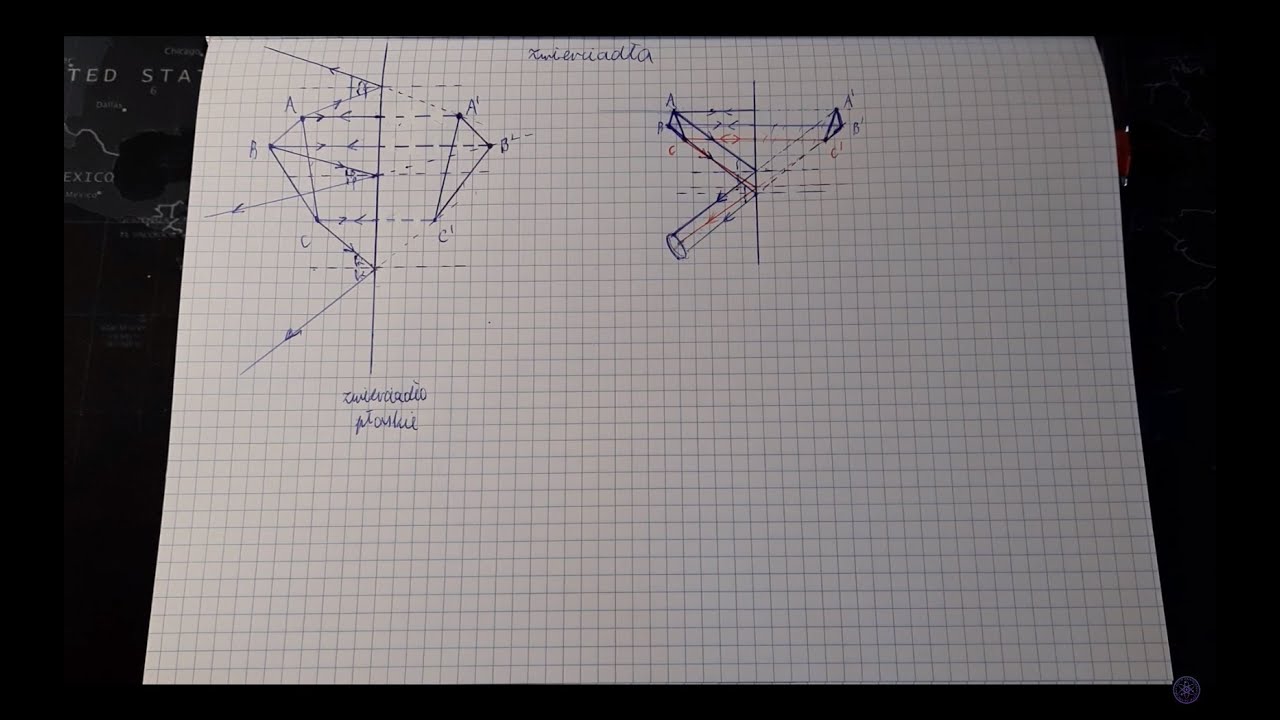 zwierciadła
Chicago
TED STA
6
Dallas
EXICO
Mexico
A A'
B B'
C C'
zwierciadło
płaskie
A A'
B B'
C C'